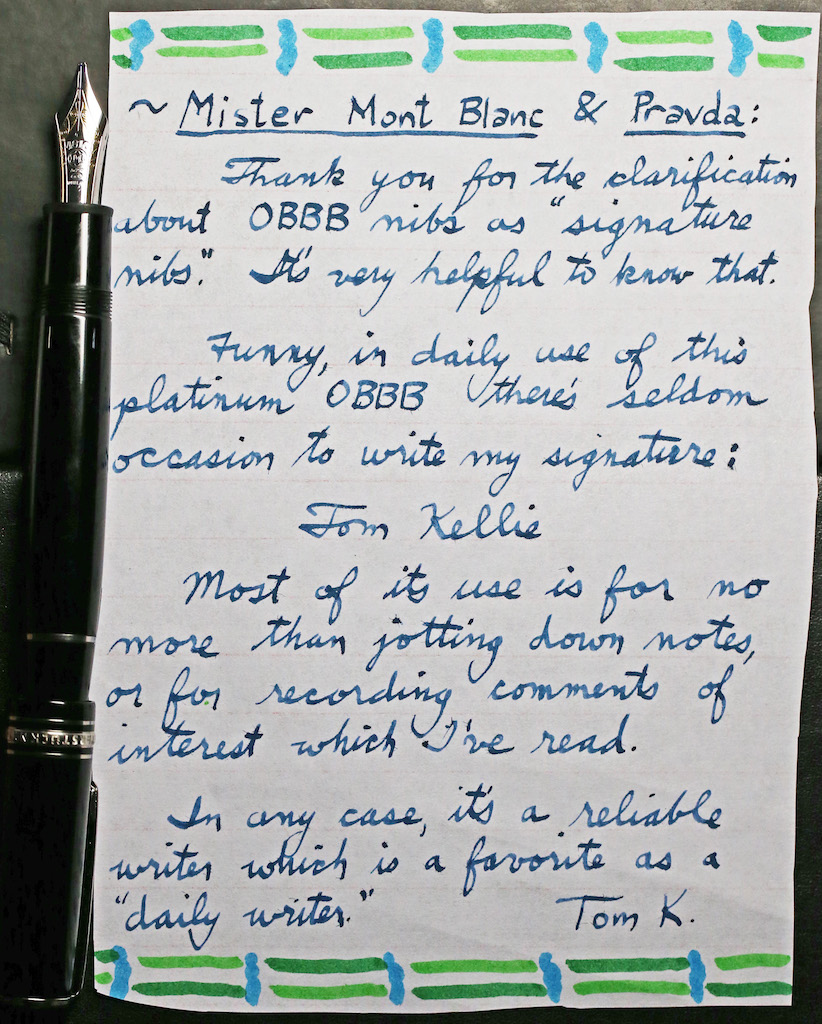 ~ Mister Mont Blanc & Pravda:
Thank you for the clarification
about OBBB nibs as "signature
nibs." It's very helpful to know that.
Funny, in daily use of this
platinum OBBB there's seldom
occasion to write my signature:
Tom Kellie
Most of its use is for no
more than jotting down notes,
or for recording comments of
interest which I've read.
In any case, it's a reliable
writer which is a favorite as a
"daily writer."
Tom K.